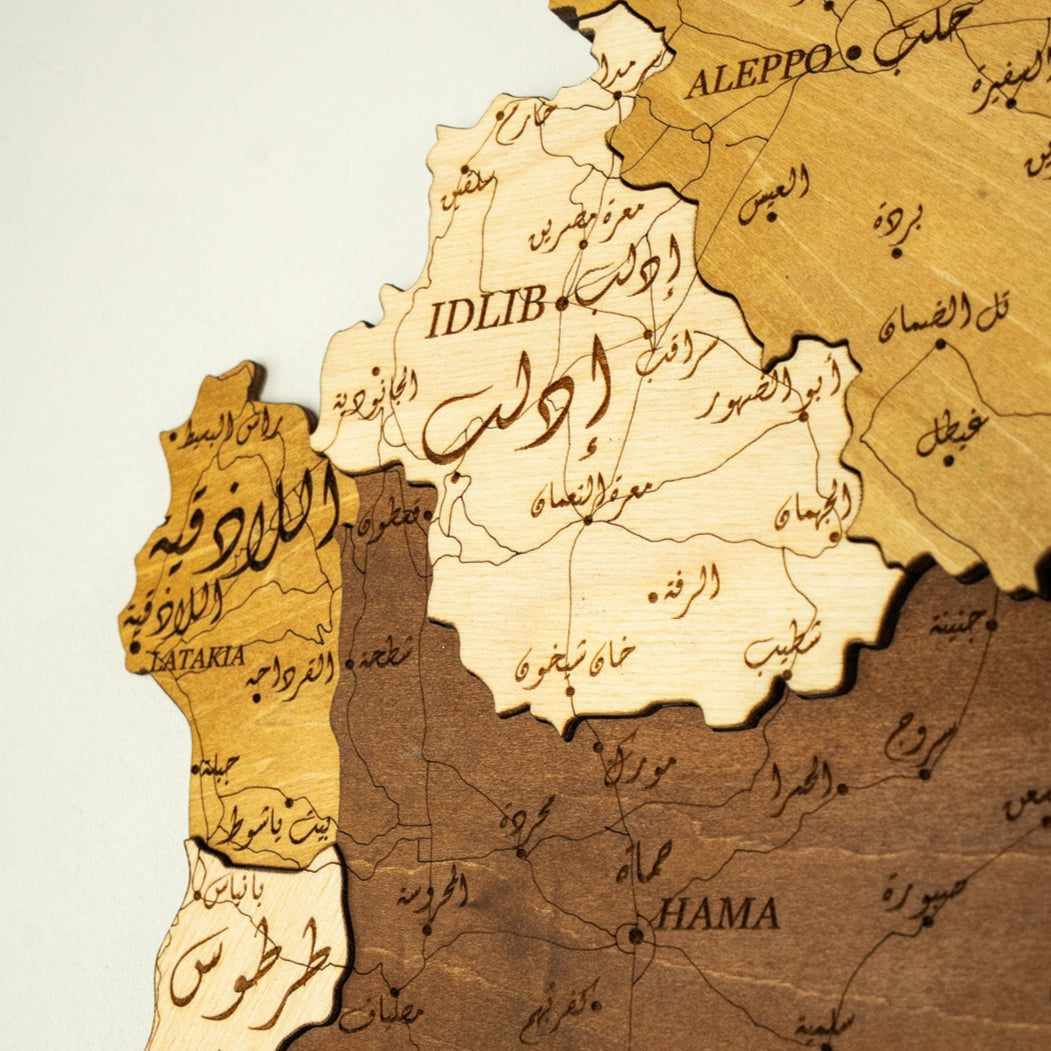 سرمدا
ALEPPO حلب
السفيرة
حارم
سلقين
معرة مصرين
العيس
بردة
IDLIB إدلب
تل الضمان
سراقب
الجانودية
إدلب
أبو الضهور
راس البسيط
غيطل
معرة النعمان
الجهمان
اللاذقية
قفطون
الرفة
اللاذقية
جنينة
LATAKIA
القرداحه
شطحة
خان شيخون
شطيب
سروج
مورك
الحمرا
جبلة
بيت ياشوط
محردة
حماة
بانياس
المحروسة
HAMA
صبورة
طرطوس
مصياف
كفربهم
سلمية